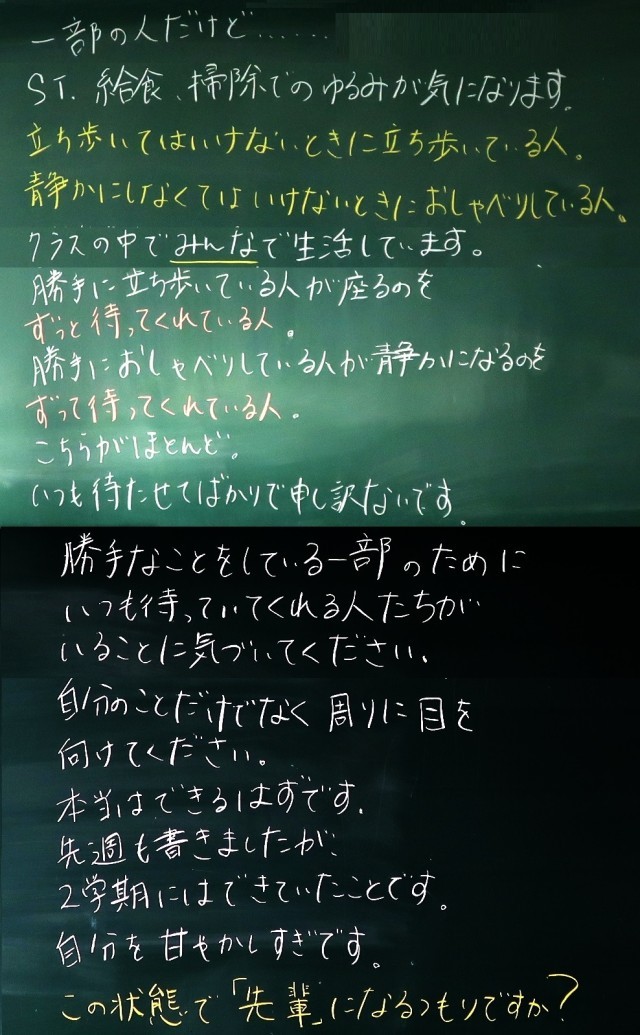 一部の人だけど……
ST、給食、掃除でのゆるみが気になります。
立ち歩いてはいけないときに立ち歩いている人。
静かにしなくてはいけないときにおしゃべりしている人。
クラスの中でみんなで生活しています。
勝手に立ち歩いている人が座るのを
ずっと待ってくれている人。
勝手におしゃべりしている人が静かになるのを
ずって待ってくれている人。
こちらがほとんど。
いつも待たせてばかりで申し訳ないです。
勝手なことをしている一部のために
いつも待っていてくれる人たちが
いることに気づいてください。
自分のことだけでなく周りに目を
向けてください。
本当はできるはずです。
先週も書きましたが、
2学期にはできていたことです。
自分を甘やかしすぎです。
この状態で「先輩」になるつもりですか？